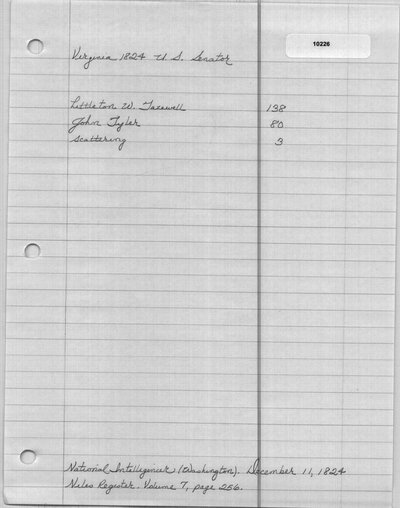 10226
Virginia 1824 U.S. Senator
Littleton W. Tazewell 138
John Tyler 80
Scattering 3
National Intelligencer (Washington). December 11, 1824
Niles Register. Volume 7, page 256.